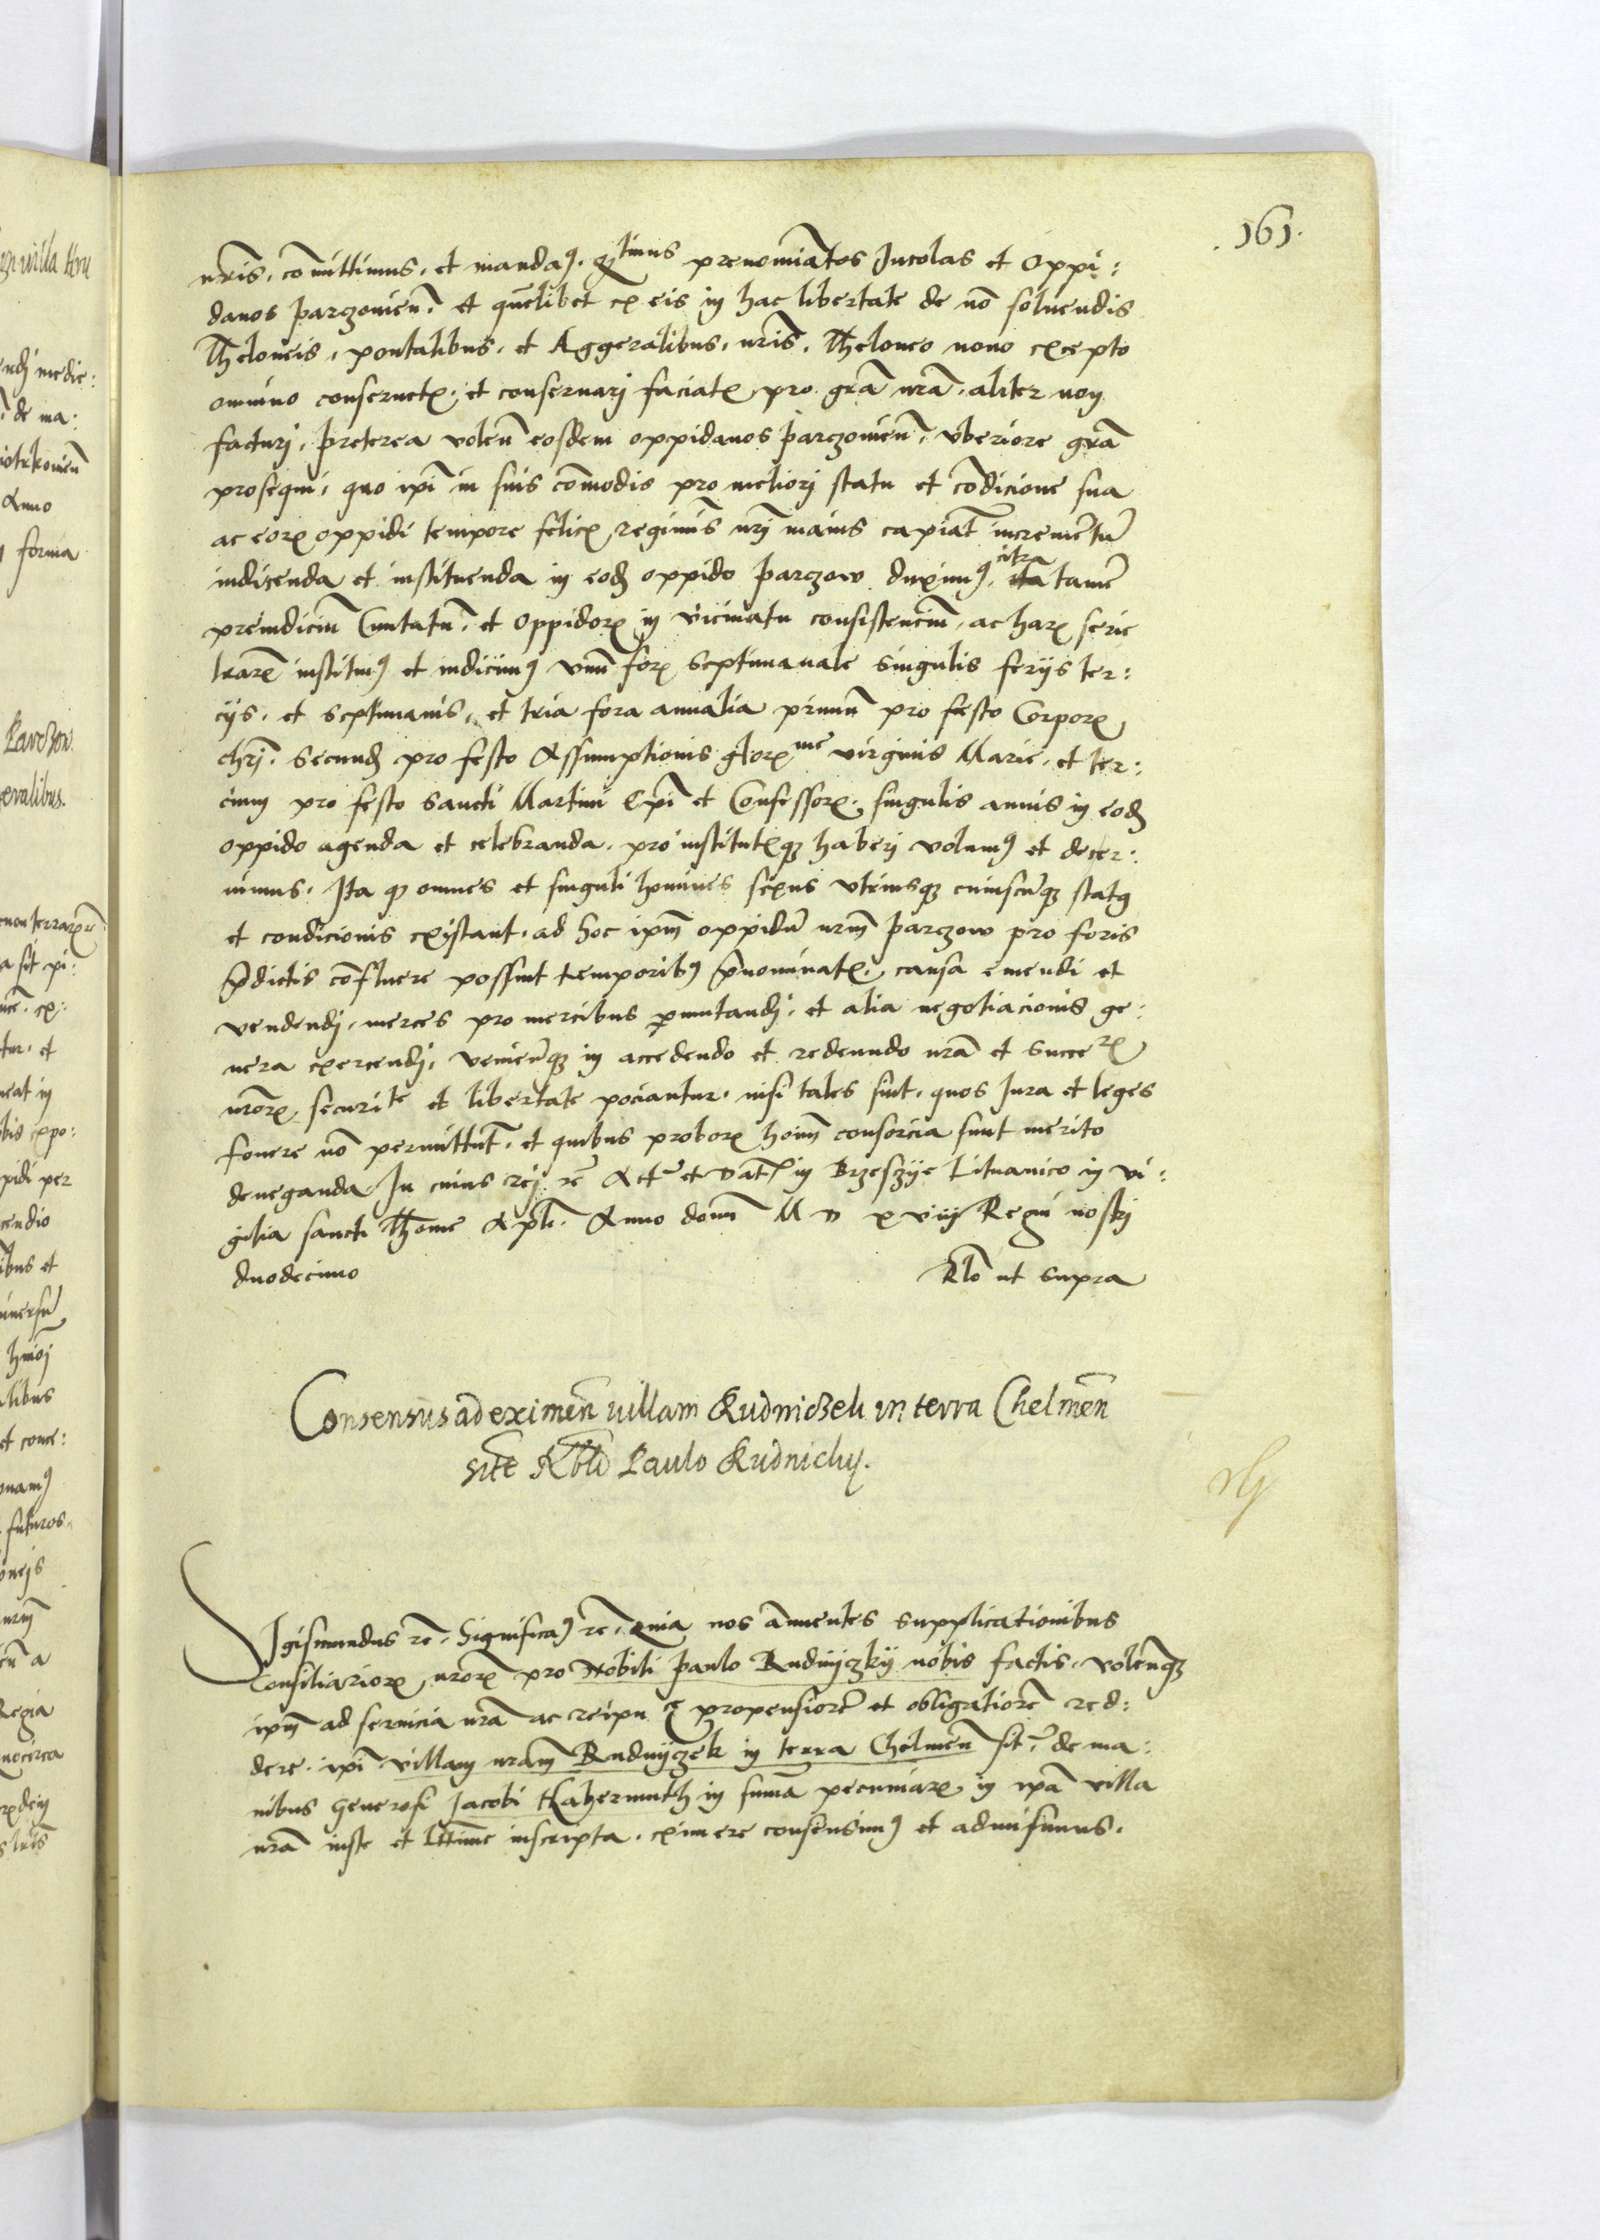 .161.
nr̃is, com̃ittimus, et mandaꝰ. qꝫtinus prenomiatos Incolas et Oppi:
danos parczouien̄. et quēlibet ex eis in hac libertate de nō soluendis
Theloneis, pontalibus, et Aggeralibus, nr̃is, Theloneo nouo excepto
omnino conseruetꝭ, et conseruarj faciatꝭ pro gr̃a nr̃a, aliter non
facturj, preterea volen̄ eosdem oppidanos parczouien̄. vberiore gr̃a
prosequi, quo ip̄i in suis cōmodis pro meliorj statu et cōdicione sua
ac eorꝫ oppidi tempore felicꝭ regiminis nr̃j maius capiāt incremētū
indicenda et instituenda in eodꝫ oppido parczow duximꝰ, citra tamē
preiudiciū Ciuitatū, et Oppidorꝫ in vicinatu consistenciū, ac harꝫ serie
lr̃arꝫ instituiꝰ et indiciimꝰ vnū forꝫ septimanale singulis ferijs ter:
cijs, et septimanis, et tria fora annalia primū pro festo Corporꝭ
chrj̄. Secundꝫ pro festo Assumptionis gloriẽ me virginis Marie, et ter:
cium pro festo Sancti Martini Ep̄i et Confessorꝭ. singulis annis in eodꝫ
oppido agenda et celebranda, pro institutꝭqꝫ haberj volumꝰ et decer:
nimus. Ita qꝫ omnes et singuli homines sexus vtriusqꝫ cuiuscūqꝫ statꝰ
et condicionis existant, ad hoc ipm̄ oppidū nr̃m parczow pro foris
p̄dictis cōfluere possint temporibꝰ p̄nominatꝭ, causa emendi et
vendendj, merces pro mercibus ꝑmutandj, et alia negotiacionis ge:
nera exercendj, veniēqꝫ in accedendo et redeundo nr̃a et Succeꝝ
nr̃orꝫ, securite et libertate pociantur, nisi tales sint, quos Iura et leges
fouere nō permittūt, et quibus proborꝫ hoīm consorcia sunt merito
deneganda. In cuius rej rc̄ Actū et Datꝭ in Brzeszcye Lituanico in vi:
gilia sancti Thome Apl̄i. Anno domī M D xviij Regnī nostrj
duodecimo
Rlō ut supra
Consensus ad eximen̄ uillam Rudniczek in terra Chelmen̄
sitē Nb̄li Paulo Rudnicky.
Sigismundus rc̄. Significaꝰ rc̄. Quia nos annuentes supplicationibus
Consiliariorꝫ nr̃orꝫ pro Nobili paulo Rudnyczky nobis factis, volenqꝫ
ipm̄ ad seruicia nr̃a ac reipu ce̜ propensiorē et obligatiorē red:
dere, ip̄i villam nr̃am Rudnyczek in terra Chelmen̄ sitā, de ma:
nibus Generosi Iacobi Zabermuth in sumā pecuniarꝫ in ip̄a villa
nr̃a iuste et lttime inscripta, eximere consensimꝰ et admisimus.